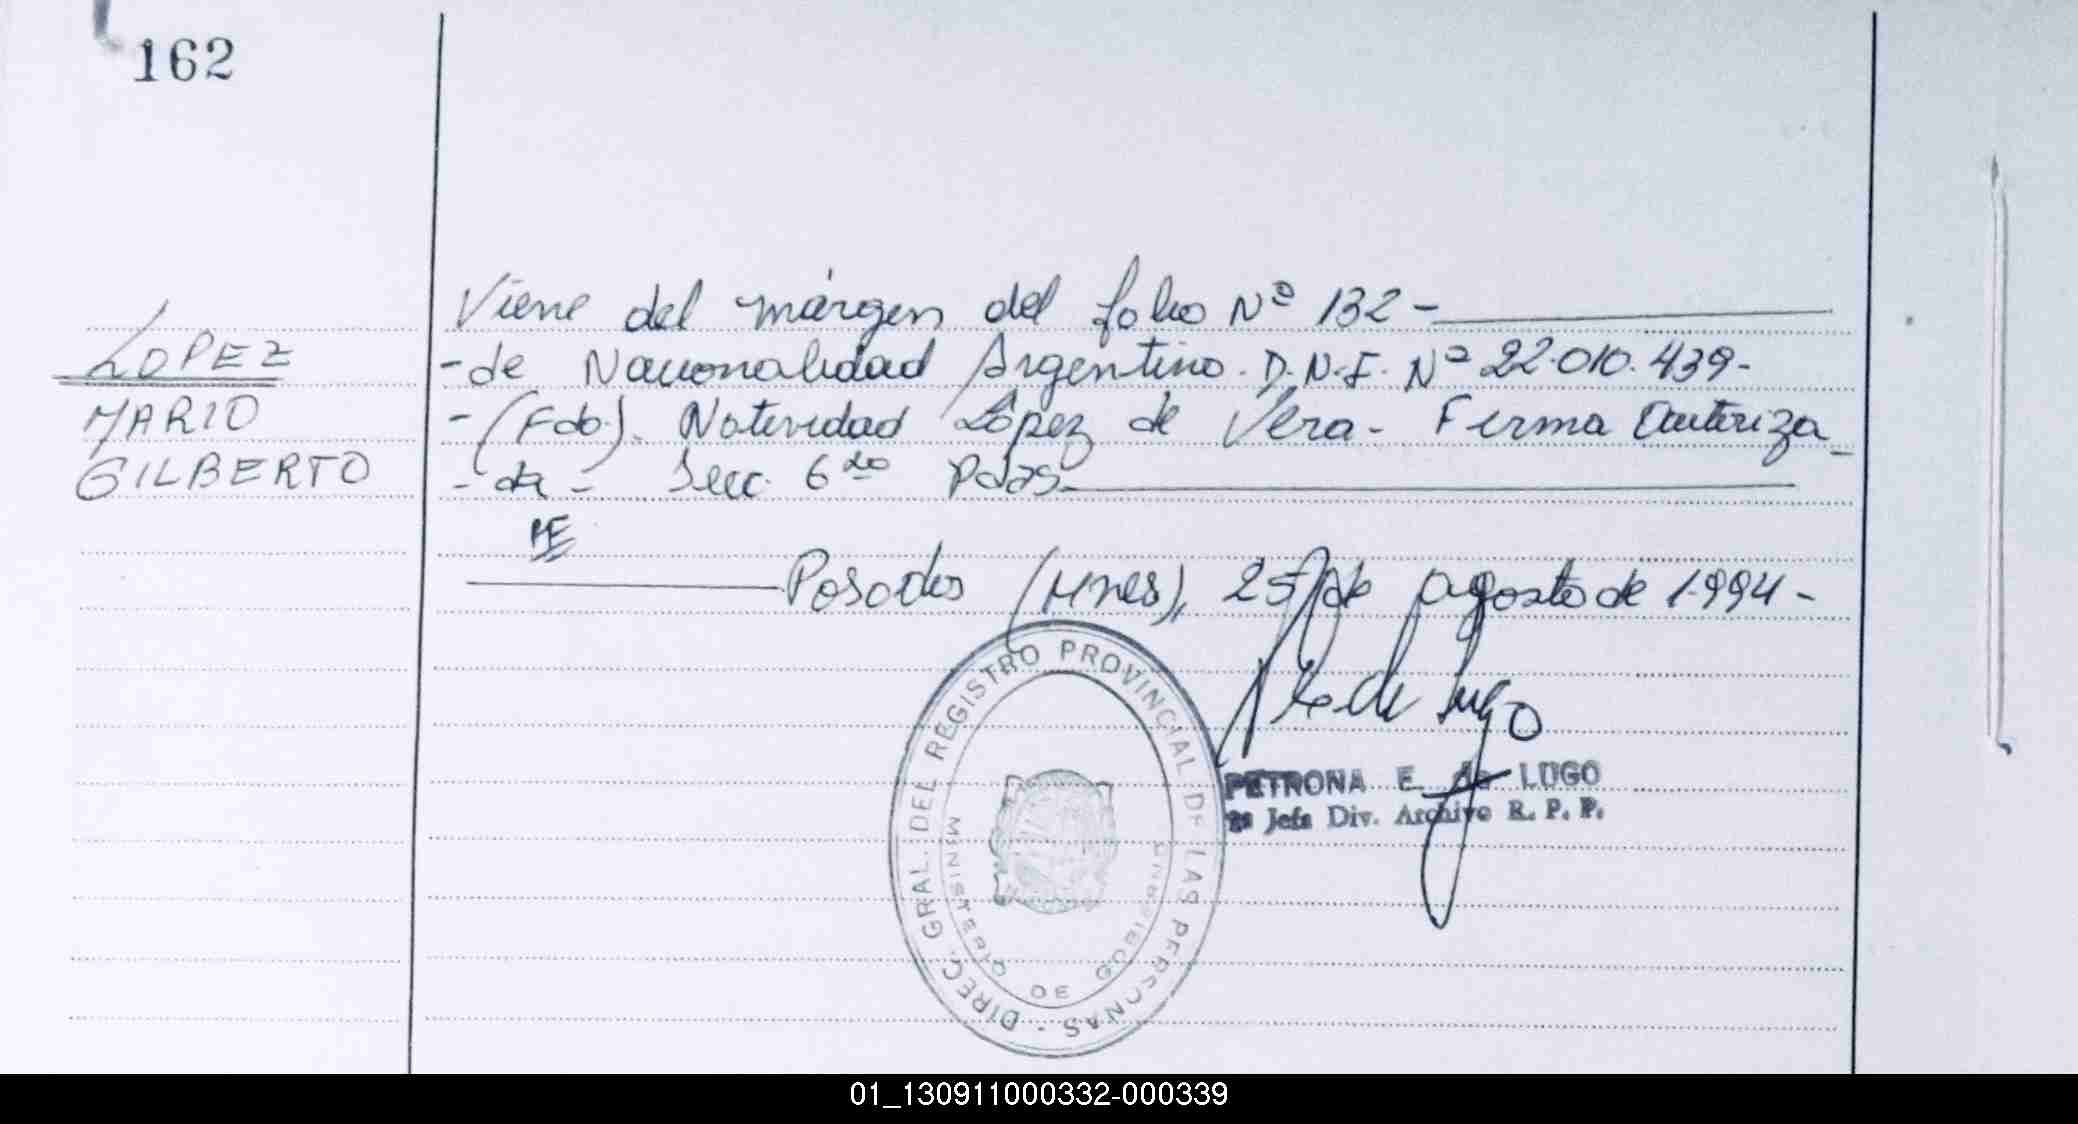 162
LOPEZ
MARIO
GILBERTO
Viene del márgen del folio Nº 132-
-de Nacionalidad Argentino. D.N.I. Nº 22.010.439-
-(Fdo). Natividad López de Vera- Firma Autoriza-
-da- Secc. 6da Pdas-
Posadas (Mnes), 25 de agosto de 1994-
DIREC. GRAL. DEL REGISTRO PROVINCIAL DE LAS PERSONAS -
MINISTERIO DE GOBIERNO
PETRONA E. de LUGO
2ª Jefa Div. Archivo R. P. P.
01_130911000332-000339